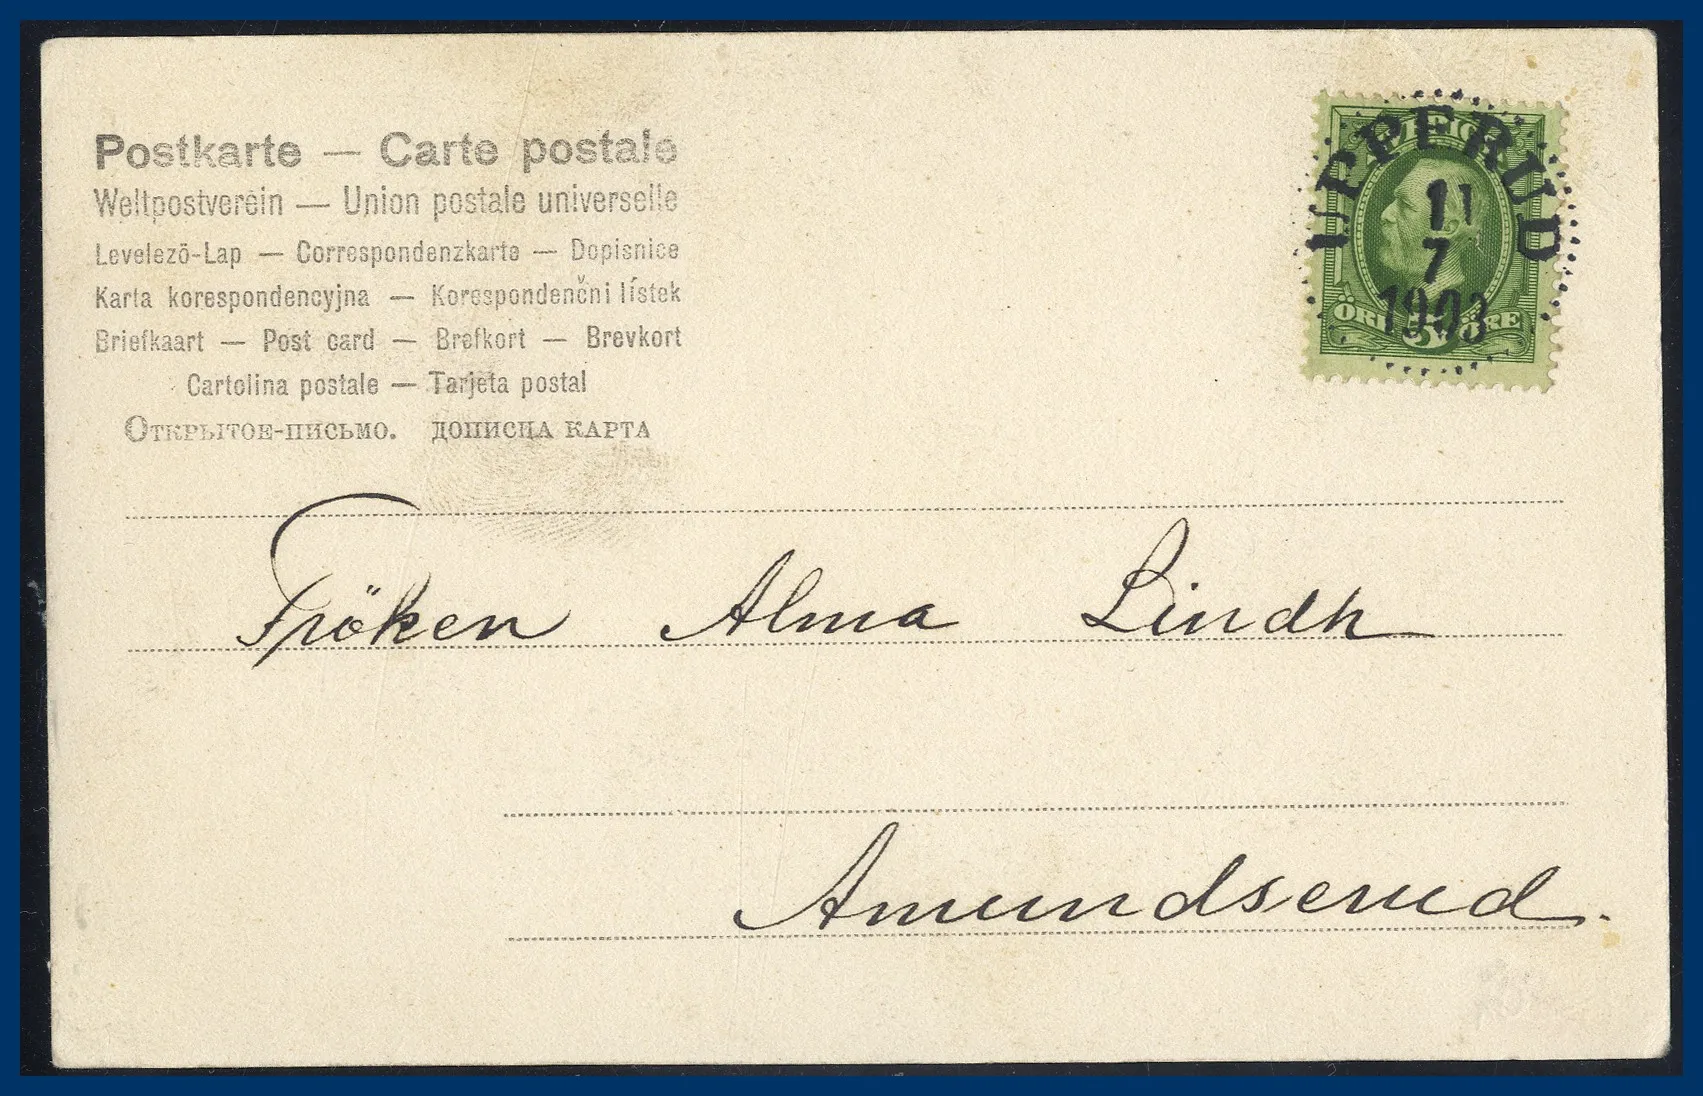 Postkarte — Carte postale
Weltpostverein — Union postale universelle
Levelezö-Lap — Correspondenzkarte — Dopisnice
Karta korespondencyjna — Korespondenčni lístek
Briefkaart — Post card — Brefkort — Brevkort
Cartolina postale — Tarjeta postal
Открытое-письмо. дописна карта
11
7
1903
ÖRE 5 ÖRE
Fröken Alma Lindh
Amundserud.